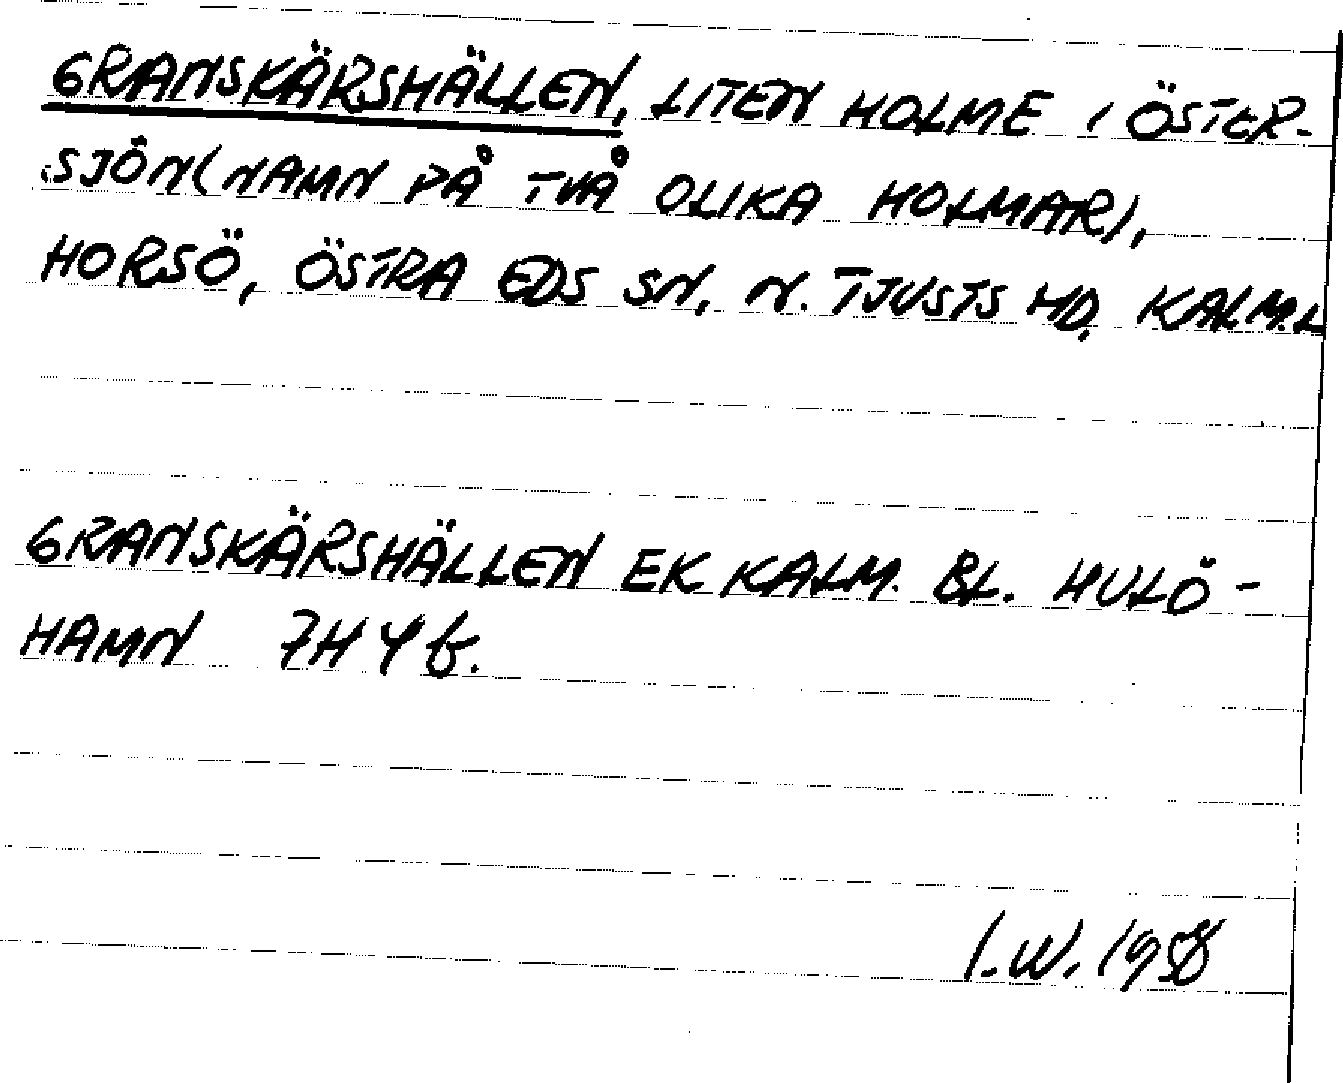 GRANSKÄRSHÄLLEN, LITEN HOLME I ÖSTER-
SJÖN (NAMN PÅ TVÅ OLIKA HOLMAR),
HORSÖ, ÖSTRA EDS SN, N. TJUSTS HD, KALM.L
GRANSKÄRSHÄLLEN EK KALM. BL. HULÖ-
HAMN 7H4b.
I.W. 1958